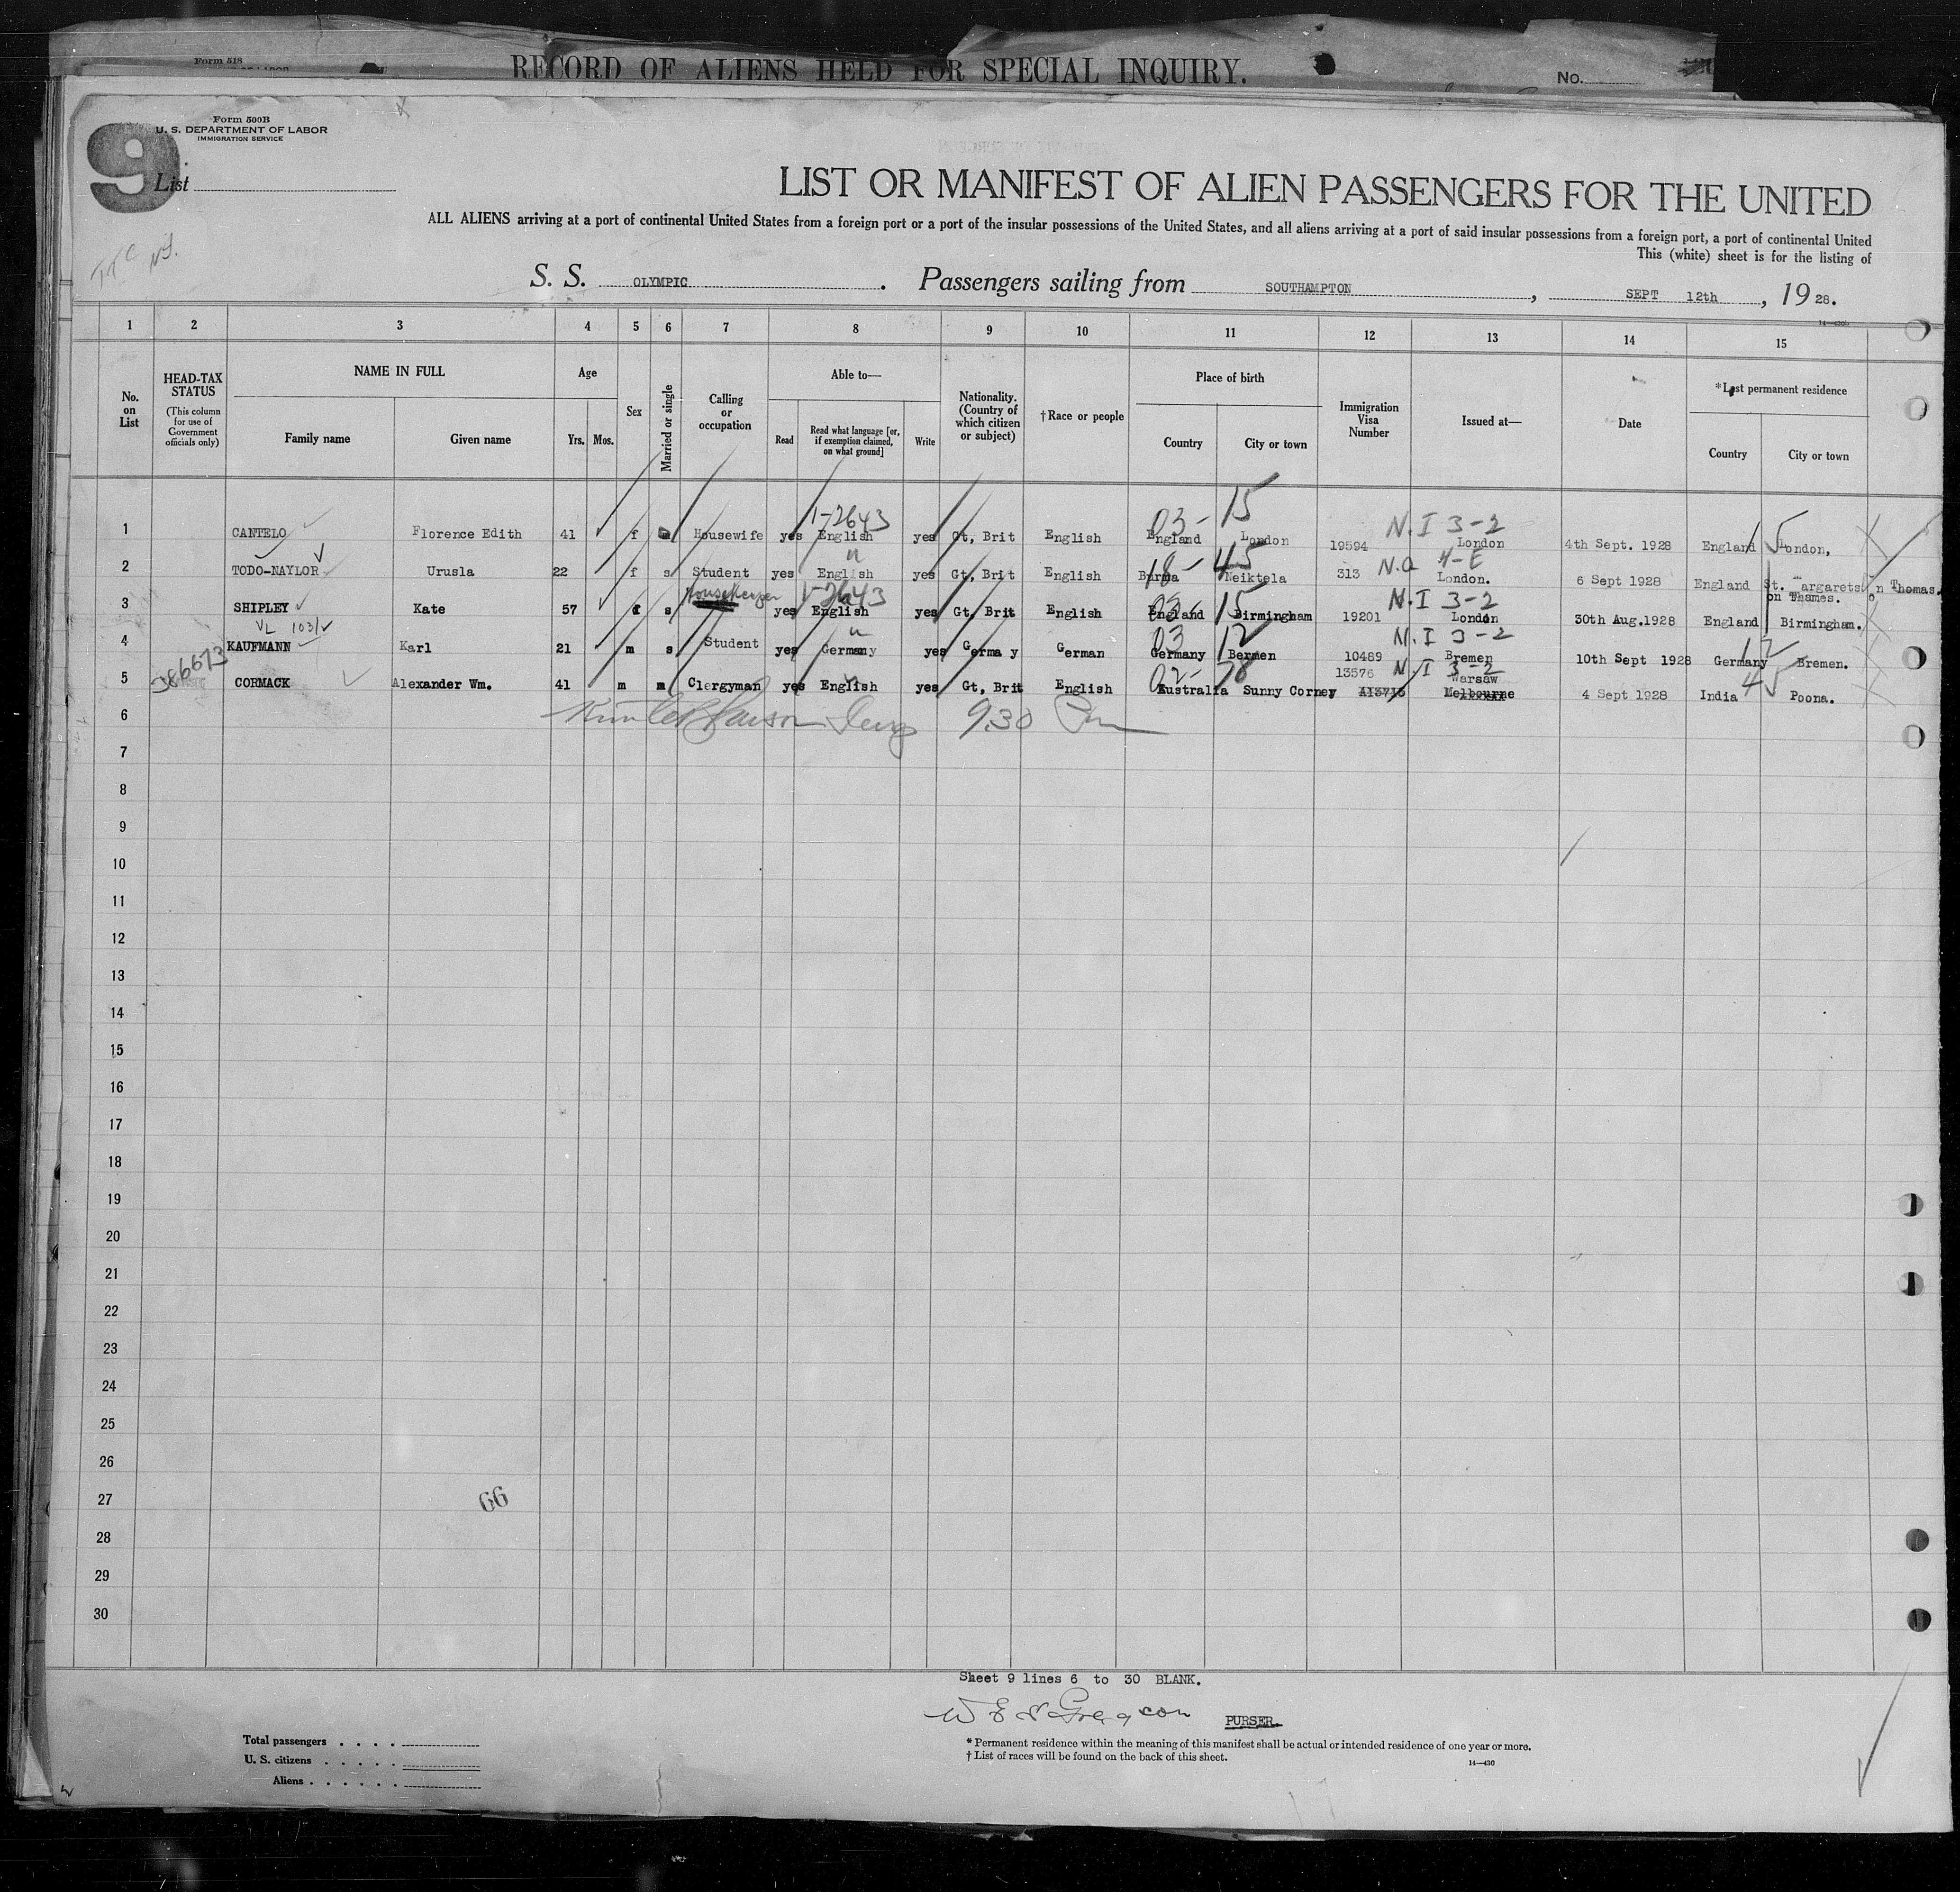 Form 518
RECORD OF ALIENS HELD FOR SPECIAL INQUIRY.
No.
9
Form 500B
U. S. DEPARTMENT OF LABOR
IMMIGRATION SERVICE
List
LIST OR MANIFEST OF ALIEN PASSENGERS FOR THE UNITED
ALL ALIENS arriving at a port of continental United States from a foreign port or a port of the insular possessions of the United States, and all aliens arriving at a port of said insular possessions from a foreign port, a port of continental United
This (white) sheet is for the listing of
S. S. OLYMPIC. Passengers sailing from SOUTHAMPTON, SEPT 12th, 1928.
1 2 3 4 5 6 7 8 9 10 11 12 13 14 15
No. on List
HEAD-TAX STATUS
(This column for use of Government officials only)
NAME IN FULL
Family name Given name
Age
Yrs. Mos.
Sex
Married or single
Calling or occupation
Able to—
Read
Read what language [or, if exemption claimed, on what ground]
Write
Nationality. (Country of which citizen or subject)
† Race or people
Place of birth
Country City or town
Immigration Visa Number
Issued at—
Date
*Last permanent residence
Country City or town
1-2643 03- 15 N.I 3-2
1 CANTELO Florence Edith 41 f m Housewife yes English yes Gt, Brit English England London 19594 London 4th Sept. 1928 England London,
" 18- 45 N.Q 4-E
2 TODO-NAYLOR Urusla 22 f s Student yes English yes Gt, Brit English Burma Neiktela 313 London. 6 Sept 1928 England St. Margarets on Thomas.
on Thames.
Housekeeper 1-2643 03- 15 N.I 3-2
3 SHIPLEY Kate 57 f s yes English yes Gt, Brit English England Birmingham 19201 London 30th Aug.1928 England Birmingham.
VL 1031 " 03 12 N.I 3-2
4 KAUFMANN Karl 21 m s Student yes Germany yes Germa y German Germany Bermen 10489 Bremen 10th Sept 1928 Germany Bremen.
386673 " 02- 78 13576 N.I 3-2 Warsaw 45
5 CORMACK Alexander Wm. 41 m m Clergyman yes English yes Gt, Brit English Australia Sunny Corney A13715 Melbourne 4 Sept 1928 India Poona.
6 9.30 Pm
7
8
9
10
11
12
13
14
15
16
17
18
19
20
21
22
23
24
25
26
27
66
28
29
30
Sheet 9 lines 6 to 30 BLANK.
PURSER.
Total passengers
U. S. citizens
Aliens
* Permanent residence within the meaning of this manifest shall be actual or intended residence of one year or more.
† List of races will be found on the back of this sheet.
14—430